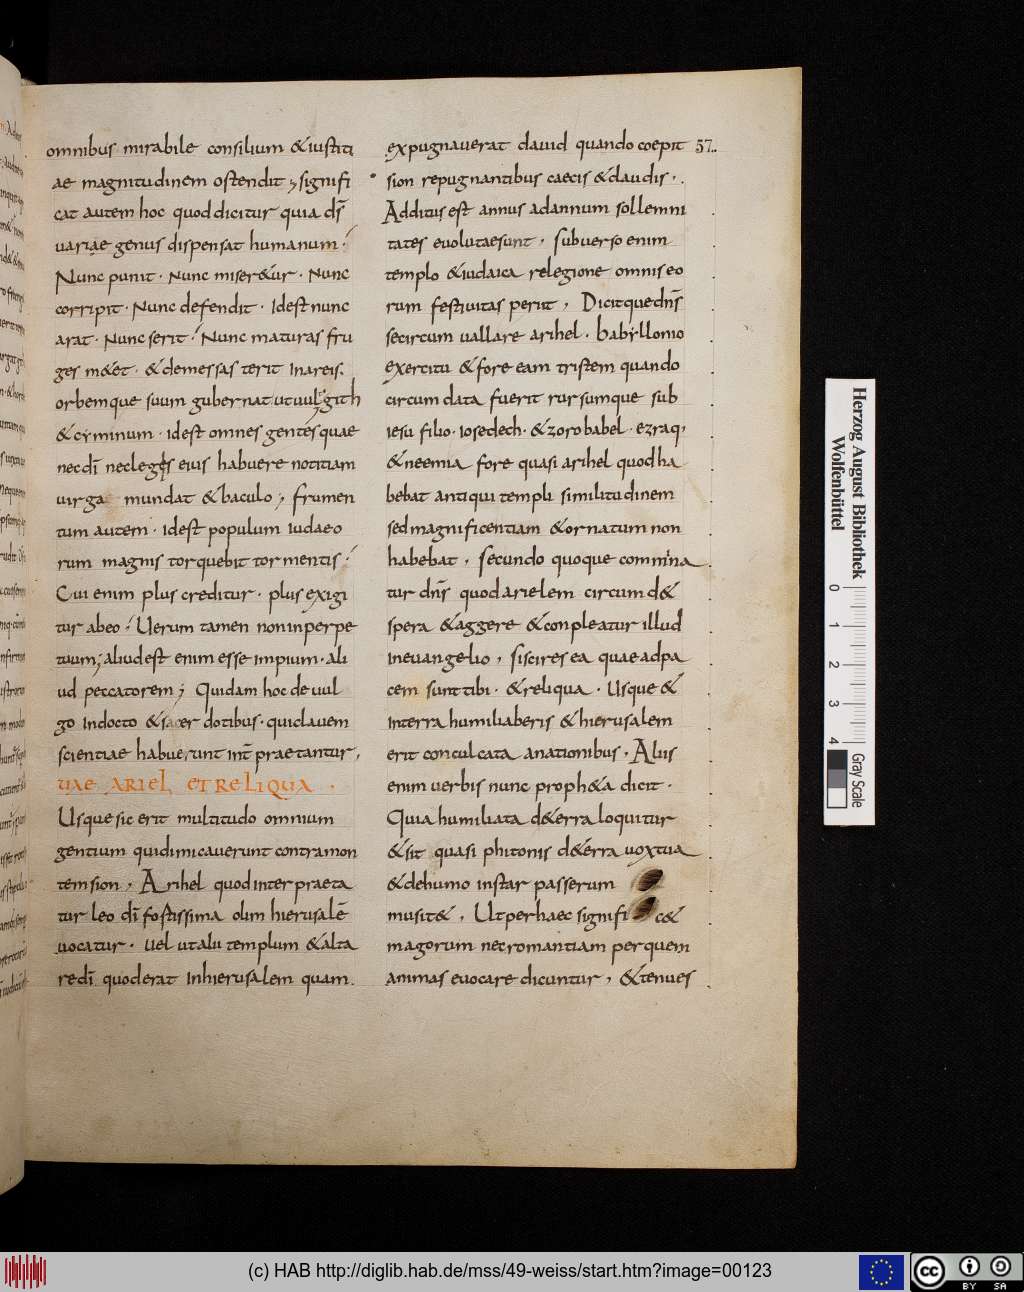 omnibus mirabile consilium &iustiti
ae magnitudinem ostendit; signifi
cat autem hoc quoddicitur quia dſ̄
uariae genus dispensat humanum·
Nunc punit· Nunc miser&ur· Nunc
corripit· Nunc defendit· Idest nunc
arat· Nunc serit· Nunc maturas fru
ges m&et· &demessas terit Inareis.
orbemque suum gubernat utuul gith
&cyminum· idest omnes gentes quae
necdī neclegis eius habuere notitiam
uirga mundat &baculo; frumen
tum autem· Idest populum Iudaeo
rum magnis torquebit tormentis·
Cui enim plus creditur· plus exigi
tur abeo· Uerum tamen noninperpe
tuum; aliudest enim esse impium· ali
ud peccatorem; Quidam hoc de uul
go Indocto &sacer dotibus· quiclauem
scientiae habuerunt int̄ praetantur,
UAE ARIEL ET RELIQUA.
Usque sic erit multitudo omnium
gentium quidimicauerunt contramon
tem sion, Arihel quod interpraeta
tur leo dī fortissima olim hierusalē
uocatur· uel utalii templum &alta
redī quoderat Inhierusalem quam.
expugnauerat dauid quando coepit
57.
sion repugnantibus caecis &claudis·.
Additus est annus adannum sollemni
tates euolutaesunt· subuerso enim
templo &iudaica relegione omnis eo
rum festiuitas periit, Dicitquedn̄s
secircum uallare arihel· babyllonio
exercitu &fore eam tristem quando
circumdata fuerit rursumque sub
iesu filio· iosedech· &zorobabel· ezraq;
&neemia fore quasi arihel quod ha
bebat antiqui templi similitudinem
sed magnificentiam &ornatum non
habebat, secundo quoque commina
tur dn̄s quod arielem circumd&
spera &aggere &conpleatur illud
ineuangelio, siscires ea quae adpa
cem sunt tibi· &reliqua· Usque &
interra humiliaberis &hierusalem
erit conculcata anationibus· Aliis
enim uerbis nunc proph&a dicit·
Quia humiliata d&erra loquitur
&sit quasi phitonis d&erra uox tua
&dehumo instar passerum
musit&, Ut per haec signifi c&
magorum necromantiam per quem
animas euocare dicuntur, &tenues
Herzog August Bibliothek
Wolfenbüttel
0 1 2 3 4
Gray Scale
(c) HAB http://diglib.hab.de/mss/49-weiss/start.htm?image=00123
cc
BY SA